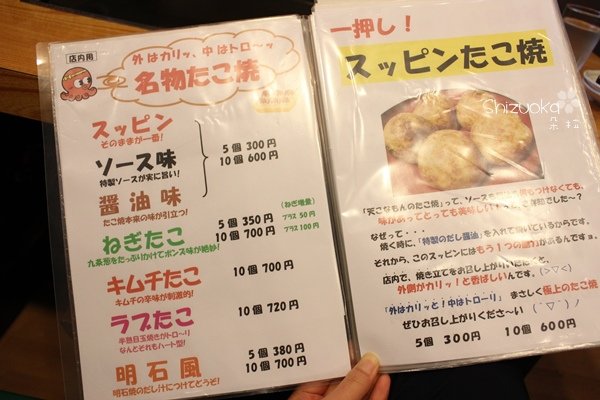 店内用
外はカリッ、中はトロ〜ッ
名物たこ焼
スッピン
そのままが一番!
ソース味
特製ソースが実に旨い!
醤油味
たこ焼本来の味が引立つ!
5個 300円
10個 600円
ねぎたこ
九条葱をたっぷりかけてポンズ味が絶妙!
5個 350円
10個 700円
(ねぎ増量)
プラス 50円
プラス 100円
キムチたこ
キムチの辛味が刺激的!
10個 700円
ラブたこ
半熟目玉焼きがトロ〜リ
なんとそれもハート型!
10個 720円
明石風
明石焼のだし汁につけてどうぞ!
5個 380円
10個 700円
一押し!
スッピンたこ焼
Shizuoka
朵拉
って、ソース
つけなくても、
味があってとっても美味しい
ご存知でした〜?
なぜって・・・
焼く時に、「特製のだし醤油」を入れて焼いているからです。
それから、このスッピンにはもう1つの魅力があるんですョ。
店内で、焼き立てをお召し上がりいただくと、
外側がカリッ!と香ばしいんです。(>▽<)
「外はカリッと!中はトローリ」 まさしく極上のたこ焼
ぜひお召し上がりくださ〜い
5個 300円 10個 600円